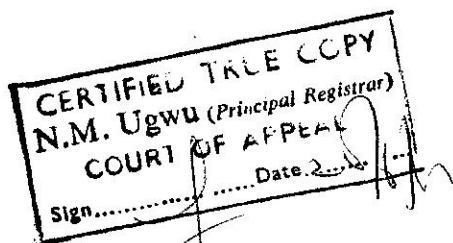 CERTIFIED TRUE COPY
N.M. Ugwu (Principal Registrar)
COURT OF APPEAL
Sign.................. Date